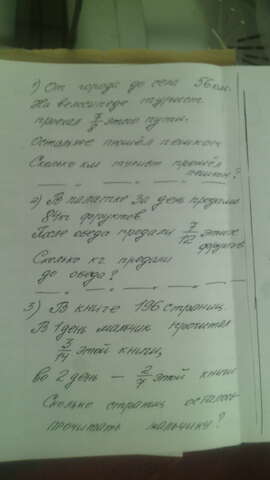 1) От города до села 56 км.
На велосипеде турист
проехал 7/8 этого пути.
Остальное прошёл пешком.
Сколько км турист прошёл
пешком?
2) В палатке за день продали
84кг фруктов
После обеда продали 7/12 этих
фруктов
Сколько кг продали
до обеда?
3) В книге 196 страниц.
В 1 день мальчик прочитал
3/14 этой книги,
во 2 день — 2/7 этой книги
Сколько страниц осталось
прочитать мальчику?